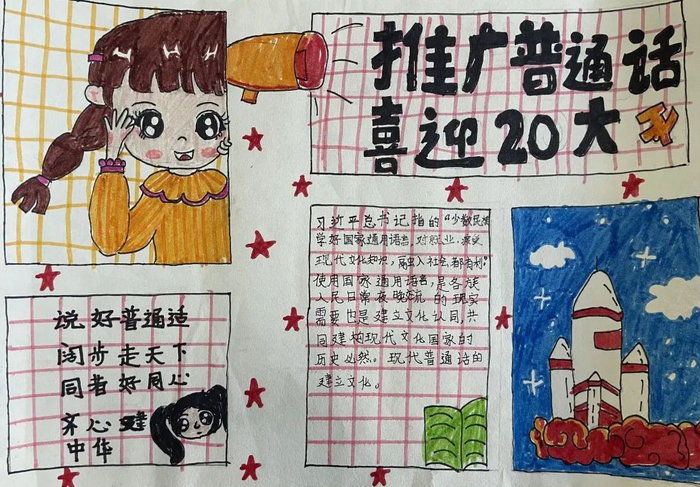 推广普通话
喜迎20大
习近平总书记指的“少数民族
学好国家通用语言,对就业、接受
现代文化知识,融入社会都有利”
使用国家通用语言,是各族
人民日常交流的现实
需要也是建立文化认同,共
同建构现代文化国家的
历史必然。现代普通话的
建立文化。
说好普通话
阔步走天下
同者好同心
齐心建
中华